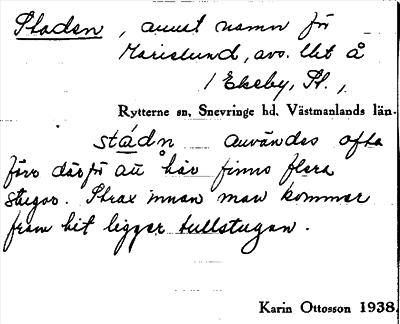 Staden, annat namn för
Marielund, avs. litt å
/ Ekeby, St.,
Rytterne sn, Snevringe hd, Västmanlands län.
stádn användes ofta
förr därför att här finns flera
stugor. Strax innan man kommer
fram hit ligger tullstugan.
Karin Ottosson 1938.